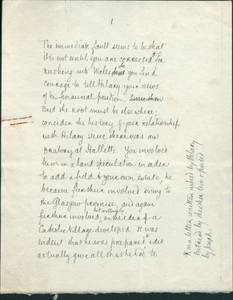 1
The immediate fault seems to be that
it is not until you are connected * for
anchoring into Wales that you find
courage to tell Hilary your views
of his financial position.
But the root must be elsewhere,
consider the history of your relationship
with Hilary since there was an
oratory at Hallett. You involved
him in a land speculation in order
to add a field to your own estate, he
became further involved owing to
the Glasgow promise, and again
further involved, but willingly, in the idea of a
Catholic village developed. It was
evident that he was prepared to
actually give all that he had to
* in a letter written indeed by Hilary
but said by
by